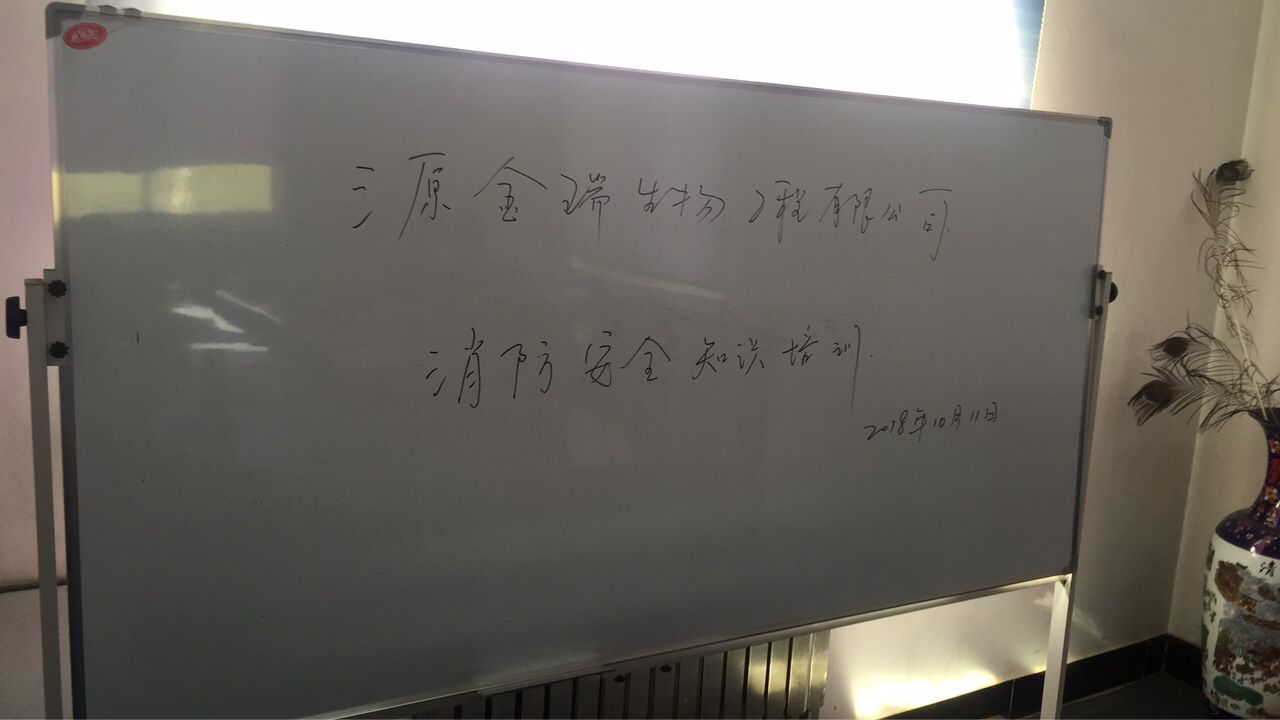 三原金瑞生物工程有限公司
消防安全知识培训.
2018年10月11日.
清